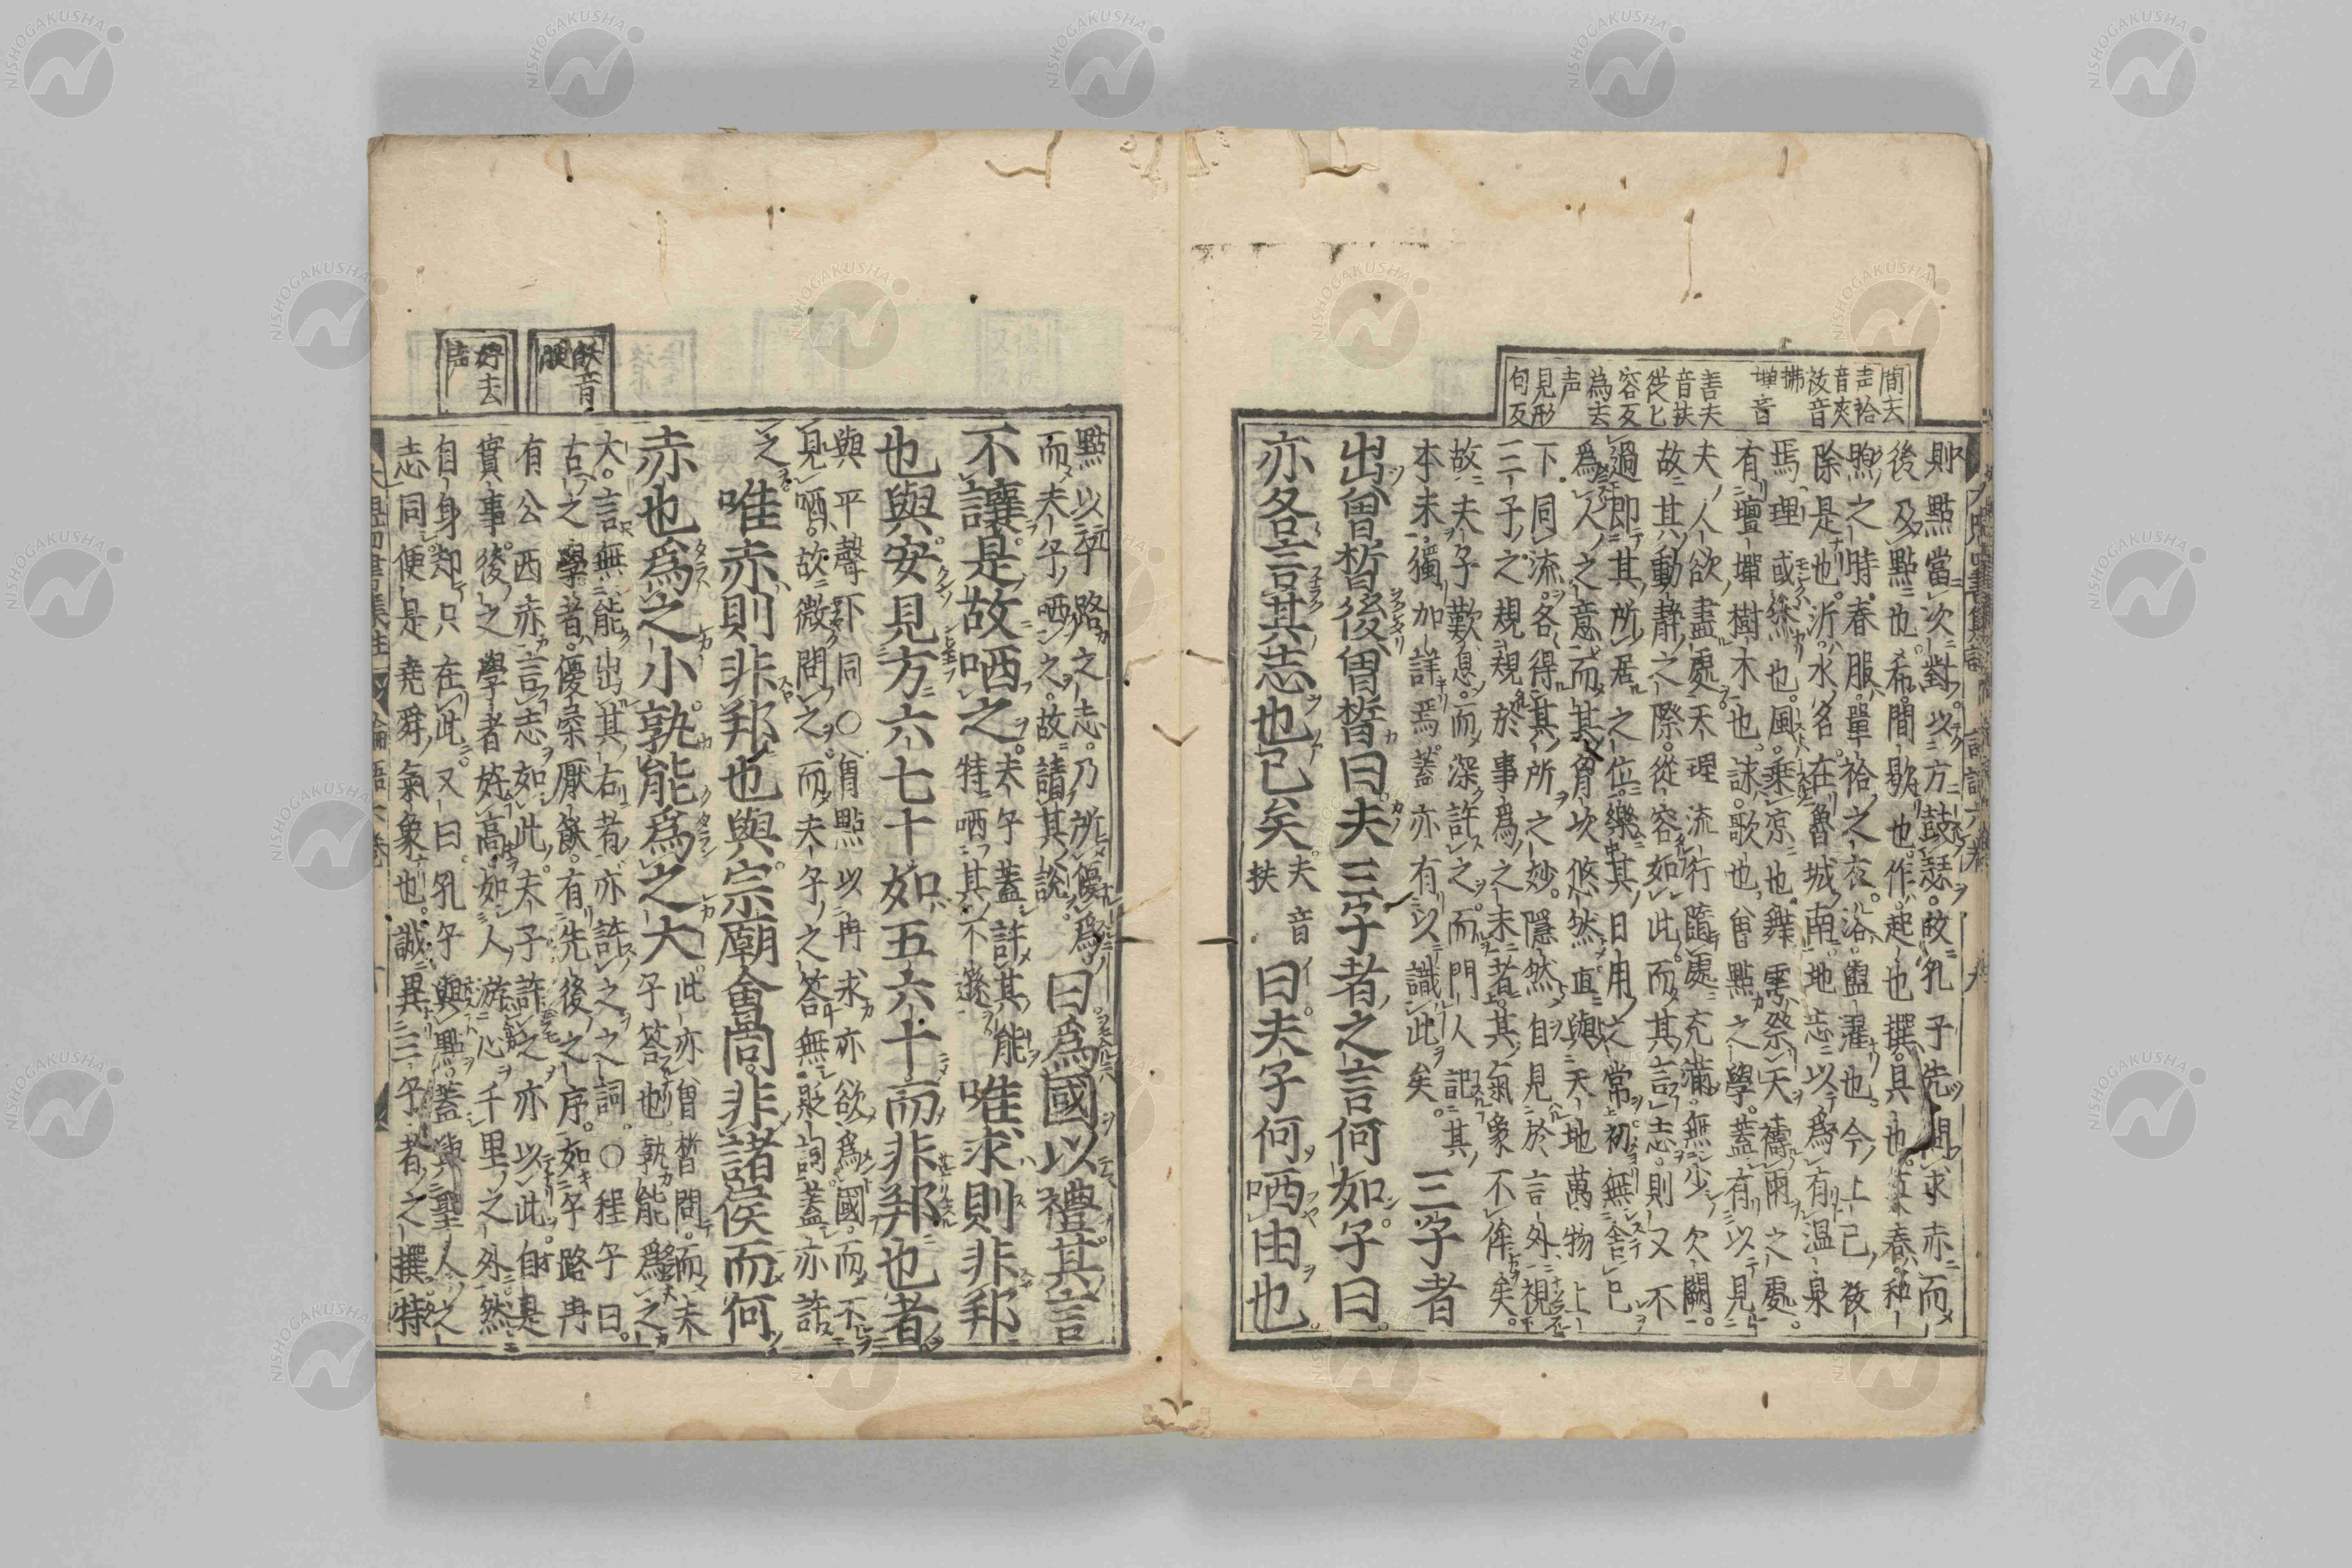 間去
声袷
音夾
祓音
拂
墠音
善夫
音扶
従七
容反
為去
声
見形
句反
則點當次對以方鼓瑟故孔子先問求赤而
後及點也希間歇也作起也撰具也莫春和
煦之時春服單袷之衣浴盥濯也今上已祓
除是也沂水名在魯城南地志以爲有温泉
焉理或然也風乗凉也舞雩祭天禱雨之處
有壇墠樹木也詠歌也曽點之學蓋有以見
夫人欲盡處天理流行隨處充滿無少欠闕
故其動靜之際從容如此而其言志則又不
過即其所居之位樂其日用之常初無舎已
爲人之意而其胷次悠然直與天地萬物上
下同流各得其所之妙隠然自見於言外視
三子之規規於事爲之末者其氣象不侔矣
故夫子歎息而深許之而門人記其
本末獨加詳焉蓋亦有以識此矣
三子者
出曾晳後曽晳曰夫三子者之言何如子曰
亦各言其志也已矣
夫音
扶
曰夫子何哂由也
點以子路之志乃所優爲
而夫子哂之故請其說
曰爲國以禮其言
不讓是故哂之
夫子蓋許其能
特哂其不遜
唯求則非邦
也與安見方六七十如五六十而非邦也者
與平聲下同○曽點以冉求亦欲爲國而不
見哂故微問之而夫子之答無貶詞蓋亦許
之
唯赤則非邦也與宗廟會同非諸侯而何
赤也爲之小孰能爲之大
此亦曽晳問而夫
子答也孰能爲之
大言無能出其右者亦許之之詞○程子曰
古之學者優柔厭飫有先後之序如子路冉
有公西赤言志如此夫子許之亦以此自是
實事後之學者好高如人游心千里之外然
自身却只在此又曰孔子與點蓋與聖人之
志同便是堯舜氣象也誠異三子者之撰特
飫音
腴
好去
声